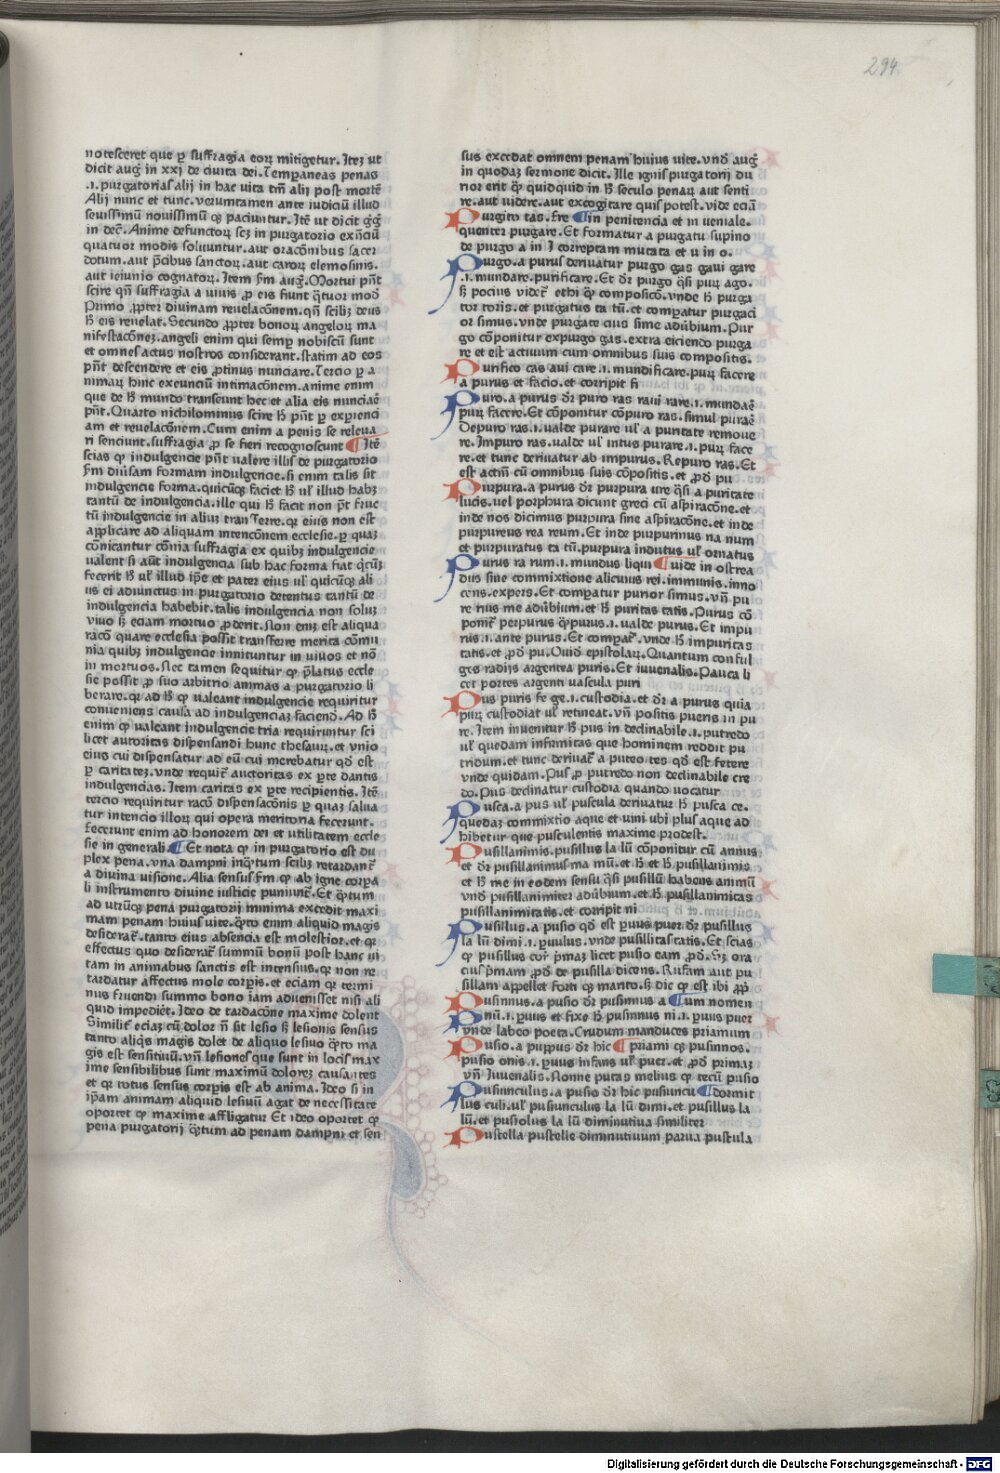 294
notesceret que ꝑ suffragia eoꝝ mitigetur. Iteꝫ ut
dicit augꝭ in xxj de ciuita dei. Tempaneas penas
.i. purgatorias alij in hac uita tm̄ alij post mortē
Alij nunc et tunc. verumtamen ante iudiciū illud
seuissimū nouissimū qꝫ paciuntur. Itē ut dicit gᷓgꝭ
in decꝭ. Anime defunctoꝝ scꝫ in purgatorio exn̄ciū
quatuor modis soluuntur. aut oracōnibus sacer
dotum. aut p̄cibus sanctoꝝ. aut caroꝝ elemosinis.
aut ieiunio cognatoꝝ. Item ẜm augꝭ. Mortui pn̄t
scire qn̄ suffragia a uiuis ꝓ eis fiunt qᷓtuor modꝭ
Primo ꝓpter diuinam reuelacōnem. qn̄ scilꝫ deus
hꝭ eis reuelat. Secundo ꝓpter bonoꝝ angeloꝝ ma
nifestacōneꝫ. angeli enim qui semꝑ nobiscū sunt
et omnes actus nostros considerant. statim ad eos
pn̄t descendere et eis ꝓtinus nunciare. Tercio ꝑ a
nimaꝝ hinc exeunciū intimacōnem. anime enim
que de hꝭ mundo transeunt hec et alia eis nunciare
pn̄t. Quarto nichilominus scire hꝭ pn̄t ꝑ exꝑienci
am et reuelacōnem. Cum enim a penis se releua
ri senciunt. suffragia ꝓ se fieri recognoscunt ¶ Itē
scias qꝭ indulgencie pn̄t ualere illis de purgatorio
ẜm diuisam formam indulgencie. si enim talis sit
indulgencie forma. quicūqꝫ faciet hꝭ uꝉ illud habꝫ
tantū de indulgencia. ille qui hꝭ facit non pᷓt fruc
tū indulgencie in aliū transferre. qꝛ eius non est
applicare ad aliquam intencōnem ecclesie. ꝑ quaꝫ
cōnicantur cōmia suffragia ex quibꝫ indulgencie
ualent si aūt indulgencia sub hac forma fiat qᷓcūꝫ
fecerit hꝭ uꝉ illud ip̄e et pater eius uꝉ quicūqꝫ ali
us ei adiunctus in purgatorio detentus tantū de
indulgencia habebit. talis indulgencia non soluꝫ
viuo ẜꝫ eciam mortuo ꝓderit. Non eniꝫ est aliqua
racō quare ecclesia possit transferre merita cōmu
nia quibꝫ indulgencie innituntur in uiuos et nō
in mortuos. Nec tamen sequitur qꝭ p̄latus eccle
sie possit ꝓ suo arbitrio animas a purgatorio li
berare. qꝛ ad hꝭ qꝭ ualeant indulgencie requiritur
conueniens causa ad indulgenciaꝫ faciendꝭ. Ad hꝭ
enim qꝭ valeant indulgencie tria requiruntur sci
licet autoritas dispensandi hunc thesauꝝ. et vnio
eius cui dispensatur ad eū cui merebatur qꝭ est
ꝑ caritateꝫ. vnde requirꝭ auctoritas ex ꝑte dantis
indulgencias. Item caritas ex ꝑte recipientis. Itē
tercio requiritur racō dispensacōnis ꝑ quaꝫ salua
tur intencio illoꝝ qui opera meritoria fecerunt.
fecerunt enim ad honorem dei et utilitatem eccle
sie in generali. ¶ Et nota qꝭ in purgatorio est du
plex pena. vna dampni inqᷓtum scilꝫ retardantꝭ
a diuina uisione. Alia sensus ẜm qꝭ ab igne corpa
li instrumento diuine iusticie puniūtꝭ. Et qᷓtum
ad utrūqꝫ pena purgatorij minima excedit maxi
mam penam huius uite. qᷓto enim aliquid magis
desideratꝭ. tanto eius absencia est molestior. et qꝛ
effectus quo desideratꝭ summū bonū post hanc ui
tam in animabus sanctis est intensius. qꝛ non re
tardatur affectus mole corꝑis. et eciam qꝛ termi
nus fruendi summo bono iam aduenisset nisi ali
quid impediēt. Ideo de tardacōne maxime dolent
Similitꝭ eciaꝫ cū dolor n̄ sit lesio ẜꝫ lesionis sensus
tanto aliqᷓs magis dolet de aliquo lesiuo qᷓto ma
gis est sensitiuū. vn̄ lesiones que sunt in locis max
ime sensibilibus sunt maximū doloreꝫ causantes
et qꝛ totus sensus corꝑis est ab anima. Ideo si in
ip̄am animam aliquid lesiuū agat de necessitate
oportet qꝭ maxime affligatur Et ideo oportet qꝭ
pena purgatorij qᷓtum ad penam dampni et sen
sus excedat omnem penam huius uite. vndꝭ augꝭ
in quodaꝫ sermone dicit. Ille ignis purgatorij du
rior erit qꝭ quidquid in hꝭ seculo penaꝝ aut senti
re. aut uidere. aut excogitare quis potest. vide eciā
Purgito tas. fre ¶ in penitencia et in ueniale.
quenter purgare. Et formatur a purgatu supino
de purgo a in i correptam mutata et u in o.
Purgo. a purus deriuatur purgo gas gaui gare
.i. mundare. purificare. Et dꝛ purgo qᷓsi puꝝ ago.
ẜꝫ pocius videtꝭ ethi qꝭ composicō. vnde hꝭ purga
tor toris. et purgatus ta tū. et comꝑatur purgaci
or simus. vnde purgate cius sime aduḃium. Pur
go cōponitur expurgo gas. extra eiciendo purga
re et est actiuum cum omnibus suis compositis.
Purifico cas aui care .i. mundificare. puꝝ facere
a purus et facio. et corripit fi
Puro. a purus dꝛ puro ras raui rare .i. mundaꝭ
puꝝ facere. Et cōponitur cōpuro ras. simul puraꝭ
Depuro ras .i. ualde purare uꝉ a puritate remoue
re. Impuro ras. ualde uꝉ intus purare .i. puꝝ face
re. et tunc deriuatur ab impurus. Repuro ras. Et
est actiū cū omnibus suis cōpositis. et ꝓdꝭ pu
Purpura. a purus dꝛ purpura ure qᷓsi a puritate
lucis. uel porphura dicunt greci cū aspiracōne. et
inde nos dicimus purpura sine aspiracōne. et inde
purpureus rea reum. Et inde purpurinus na num
et purpuratus ta tū. purpura indutus uꝉ ornatus
Purus ra rum .i. mundus liqui ¶ uide in ostrea
dus sine commixtione alicuius rei. immunis. inno
cens. expers. Et comꝑatur purior simus. vn̄ pu
re rius me aduḃium. et hꝭ puritas tatis. Purus cō
ponitꝭ perpurus qᷓpurus .i. ualde purus. Et impu
rus .i. ante purus. Et comꝑatꝭ. vnde hꝭ impuritas
tatis. et ꝓdꝭ pu. Ouidꝭ epistolaꝝ. Quantum con ful
ges radijs argentea puris. Et iuuenalis. Pauca li
cet portes argenti vascula puri
Pus puris fe ge .i. custodia. et dꝛ a purus quia
puꝝ custodiat uꝉ retineat. vn̄ positis pueris in pu
re. Item inuenitur hꝭ pus in declinabile .i. putredo
uꝉ quedam infirmitas que hominem reddit pu
tridum. et tunc deriuatꝭ a puteo tes qꝭ est fetere
vnde quidam. Pus ꝓ putredo non declinabile cre
do. Pus declinatur custodia quando uocatur
Pusca. a pus uꝉ puscula deriuatur hꝭ pusca ce.
quedaꝫ commixtio aque et uini ubi plus aque ad
hibetur que pusculentis maxime prodest.
Pusillanimis. pusillus la lū cōponitur cū annus
et dꝛ pusillanimus ma mū. et hꝭ et hꝭ pusillanimis
et hꝭ me in eodem sensu qᷓsi pusillū habens animū
vndꝭ pusillanimiter aduḃium. et hꝭ pusillanimitas
pusillanimitatis. et corripit ni
Pusillus. a pusio qꝭ est ꝑuus puer dꝛ pusillus
la lū dimi .i. ꝑuulus. vnde pusillitas tatis. Et scias
qꝭ pusillus corꝭ p̄maꝫ licet pusio eam ꝓdꝭ. Sꝫ ora
cius p̄mam ꝓdꝭ de pusilla dicens. Rufam aut pu
sillam appellet forti qꝫ manto. ẜꝫ dic qꝭ est ibi ꝓpꝭ
Pusinnus. a pusio dꝛ pusinnus a ¶ um nomen
nū .i. ꝑuus et fixe hꝭ pusinnus ni .i. ꝑuus puer
vnde labeo poeta. Crudum manduces priamum
Pusio. a puppus dꝛ hic ¶ priami qꝫ pusinnos.
pusio onis .i. ꝑuus infans uꝉ puer. et ꝓdꝭ primaꝫ
vn̄ Iuuenalis. Nonne putas melius qꝭ tecū pusio
Pusiunculus. a pusio dꝛ hic pusiuncu ¶ dormit
lus culi. uꝉ pusiunculus la lū dimi. et pusillus la
lū. et pusiolus la lū diminutiua similiter
Pustella pustelle diminutiuum parua pustula
Digitalisierung gefördert durch die Deutsche Forschungsgemeinschaft - DFG